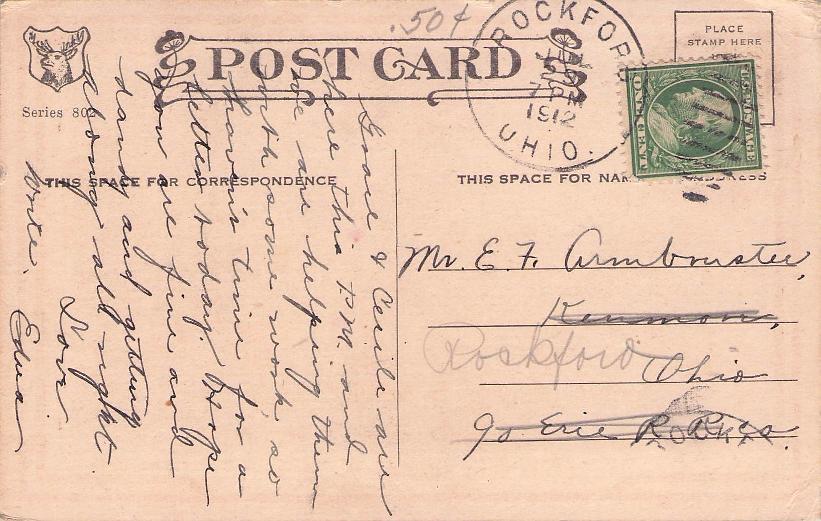 .50¢
POST CARD
Series 802
ROCKFORD
JAN
7 PM
1912
OHIO.
PLACE
STAMP HERE
U.S. POSTAGE
ONE CENT
THIS SPACE FOR CORRESPONDENCE
THIS SPACE FOR NAME ADDRESS
Grace & Cecile are
here this P.M. and
we are helping them
with some work, so
haven't time for a
letter today. Hope
you are fine and
dandy and getting
along all right
Love
Edna
Write.
Mr. E. F. Armbruster,
Kenmore,
Rockford
Ohio
℅ Erie R. R. Co.